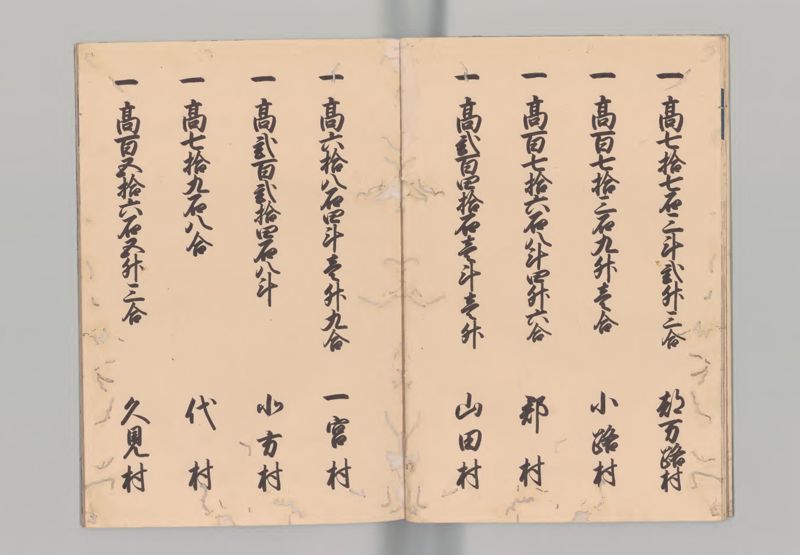 一 高七拾七石三斗弐升三合 那万路村
一 高百七拾三石九升壱合 小路村
一 高百七拾六石八斗四升六合 郡村
一 高弐百四拾石壱斗壱升 山田村
一 高六拾八石四斗壱升九合 一宮村
一 高弐百弐拾四石八斗 北方村
一 高七拾九石八合 代村
一 高百五拾六石五升三合 久見村